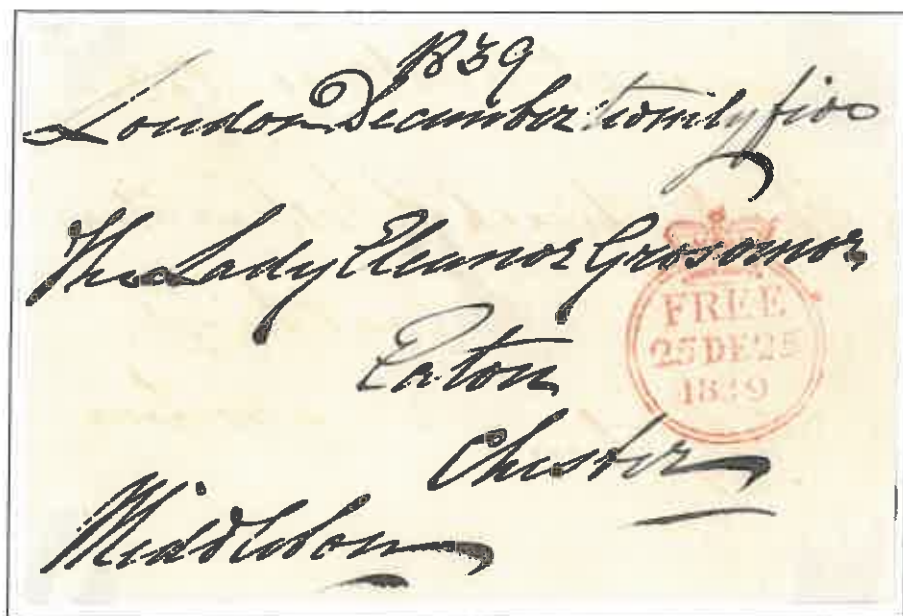 1839
London December twenty five
The Lady Eleanor Grosvenor
Eaton
Chester
Middleton
FREE
25DE25
1839